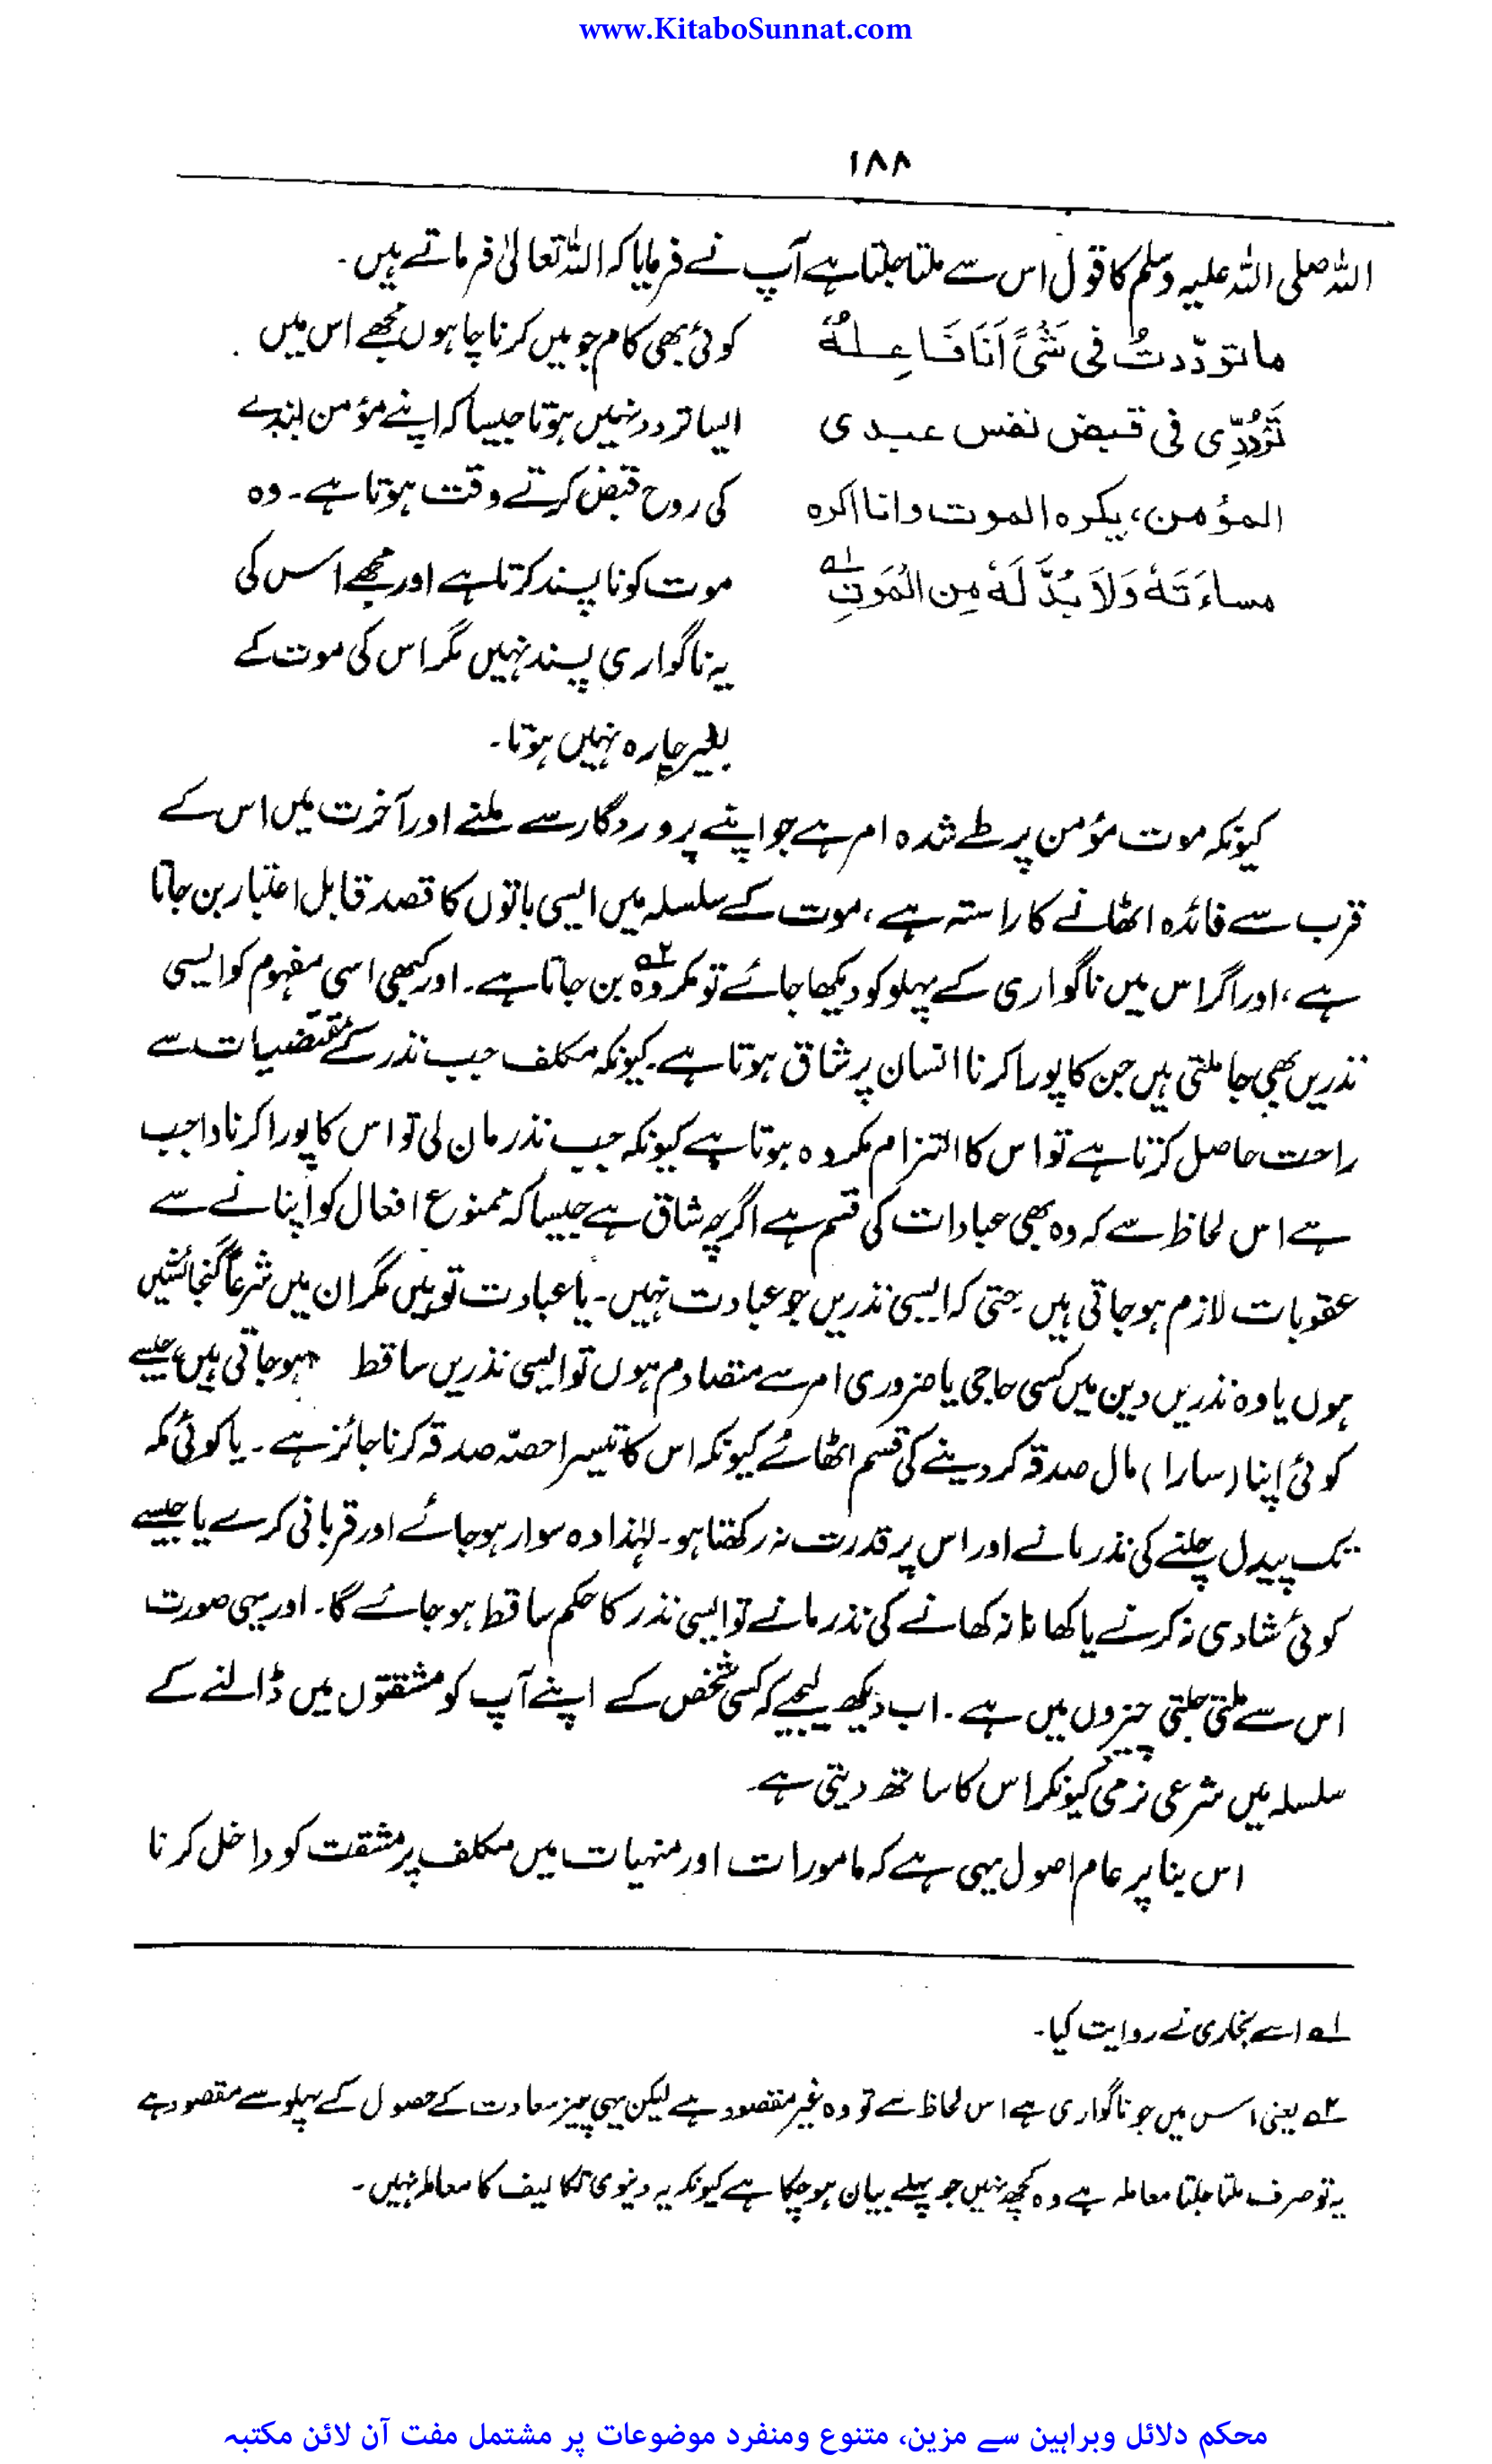 www.KitaboSunnat.com
۱۸۸
اللہ صلی اللہ علیہ وسلم کا قول اس سے ملتا جلتا ہے آپ نے فرمایا کہ اللہ تعالیٰ فرماتے ہیں۔
ما ترددتُ فی شَیْءٍ اَنَا فَاعِلُهٗ
تَرَدُّدِی فی قبض نفس عبدی
المؤمن، یکره الموت وانا اکره
مساءَتَهٗ وَلَا بُدَّ لَهٗ مِن الْمَوتِ ؎۱
کوئی بھی کام جو میں کرنا چاہوں مجھے اس میں
ایسا تردد نہیں ہوتا جیسا کہ اپنے مؤمن بندے
کی روح قبض کرتے وقت ہوتا ہے۔ وہ
موت کو ناپسند کرتا ہے اور مجھے اس کی
یہ ناگواری پسند نہیں مگر اس کی موت کے
بغیر چارہ نہیں ہوتا۔
کیونکہ موت مؤمن پر طے شدہ امر ہے جو اپنے پروردگار سے ملنے اور آخرت میں اس کے
قرب سے فائدہ اٹھانے کا راستہ ہے، موت کے سلسلہ میں ایسی باتوں کا قصد قابل اعتبار بن جاتا
ہے، اور اگر اس میں ناگواری کے پہلو کو دیکھا جائے تو مکروہ ؎۲ بن جاتا ہے۔ اور کبھی اسی مفہوم کو ایسی
نذریں بھی جا ملتی ہیں جن کا پورا کرنا انسان پر شاق ہوتا ہے۔ کیونکہ مکلف جب نذر کے مقتضیات سے
راحت حاصل کرتا ہے تو اس کا التزام مکروہ ہوتا ہے کیونکہ جب نذر مان لی تو اس کا پورا کرنا واجب
ہے اس لحاظ سے کہ وہ بھی عبادات کی قسم ہے اگرچہ شاق ہے جیسا کہ ممنوع افعال کو اپنانے سے
عقوبات لازم ہو جاتی ہیں حتی کہ ایسی نذریں جو عبادت نہیں۔ یا عبادت تو ہیں مگر ان میں شرعاً گنجائشیں
ہوں یا وہ نذریں دین میں کسی حاجی یا ضروری امر سے متصادم ہوں تو ایسی نذریں ساقط ہو جاتی ہیں، جیسے
کوئی اپنا (سارا) مال صدقہ کر دینے کی قسم اٹھائے کیونکہ اس کا تیسرا حصہ صدقہ کرنا جائز ہے۔ یا کوئی مکہ
تک پیدل چلنے کی نذر مانے اور اس پر قدرت نہ رکھتا ہو۔ لہٰذا وہ سوار ہو جائے اور قربانی کرے یا جیسے
کوئی شادی نہ کرنے یا کھانا نہ کھانے کی نذر مانے تو ایسی نذر کا حکم ساقط ہو جائے گا۔ اور یہی صورت
اس سے ملتی جلتی چیزوں میں ہے۔ اب دیکھ لیجیے کہ کسی شخص کے اپنے آپ کو مشقتوں میں ڈالنے کے
سلسلہ میں شرعی نرمی کیونکر اس کا ساتھ دیتی ہے۔
اس بنا پر عام اصول یہی ہے کہ مامورات اور منہیات میں مکلف پر مشقت کو داخل کرنا
؎۱ اسے بخاری نے روایت کیا۔
؎۲ یعنی اس میں جو ناگواری ہے اس لحاظ سے تو وہ غیر مقصود ہے لیکن یہی چیز سعادت کے حصول کے پہلو سے مقصود ہے
یہ تو صرف ملتا جلتا معاملہ ہے وہ کچھ نہیں جو پہلے بیان ہو چکا ہے کیونکہ یہ دنیوی تکالیف کا معاملہ نہیں۔
محکم دلائل وبراہین سے مزین، متنوع ومنفرد موضوعات پر مشتمل مفت آن لائن مکتبہ